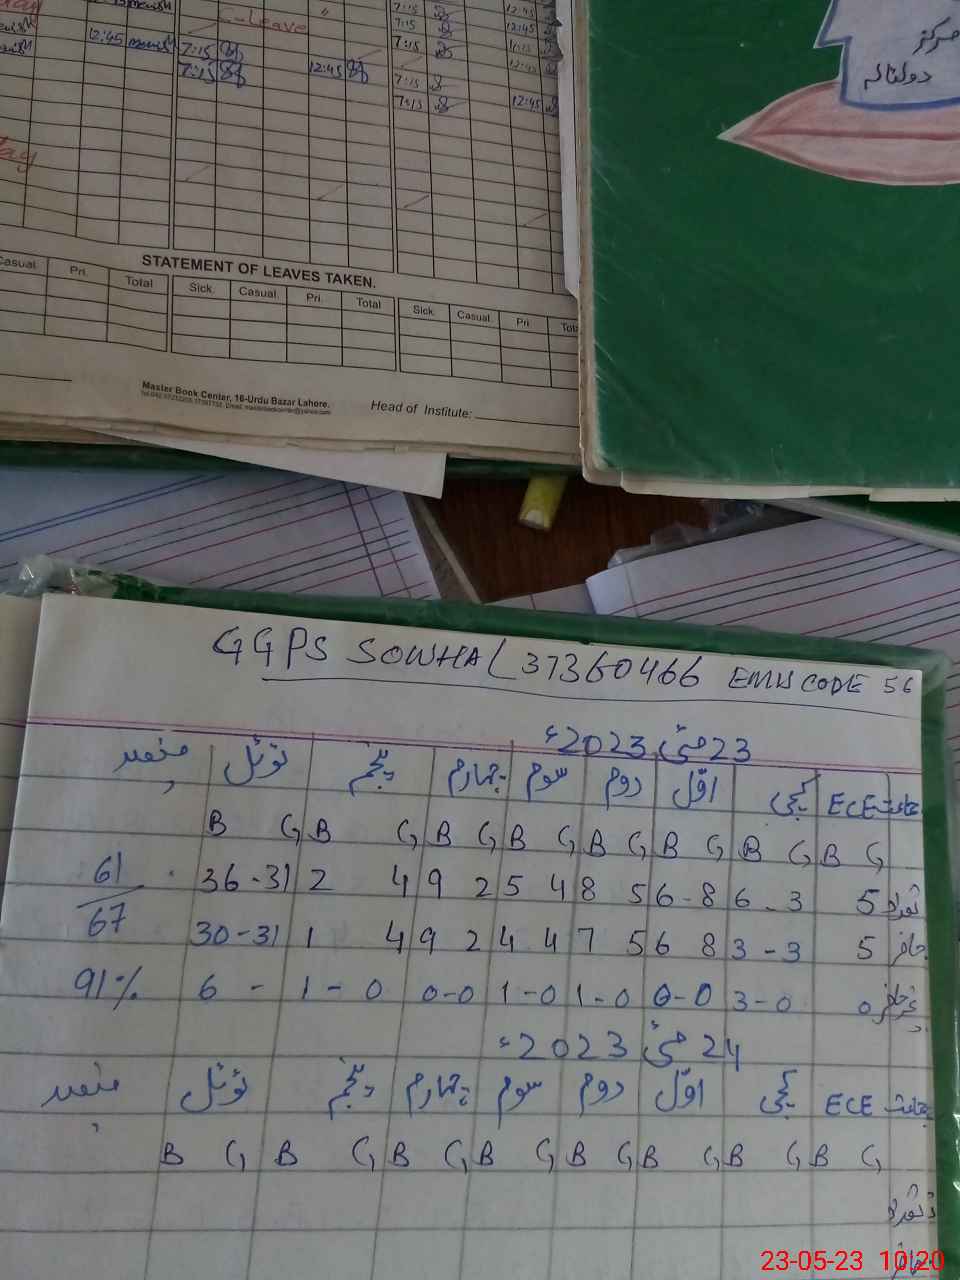 12:45
C-Leave "
7:15 12:45
7:15 12:45
7:15
7:15 12:45
7:15
12:45
7:15
7:15 12:45
مرکز
دولتالہ
STATEMENT OF LEAVES TAKEN.
Casual. Pri. Total Sick. Casual. Pri. Total Sick. Casual. Pri.
Master Book Center, 16-Urdu Bazar Lahore.
Head of Institute:
GGPS SOWHAL 37360466 EMIS CODE 56
23 مئی 2023ء
جماعت ECE کچی اوّل دوم سوم چہارم پنجم ٹوٹل فیصد
B G B G B G B G B G B G B G B G
تعداد 5 6 - 3 6 - 8 8 5 5 4 9 2 2 4 36 - 31 61/67
حاضر 5 3 - 3 6 8 7 5 4 4 9 2 1 4 30 - 31
غیرحاضر 0 3 - 0 0 - 0 1 - 0 1 - 0 0 - 0 1 - 0 6 - 91%
24 مئی 2023ء
جماعت ECE کچی اوّل دوم سوم چہارم پنجم ٹوٹل فیصد
B G B G B G B G B G B G B G B G
تعداد
حاضر
23-05-23 10:20